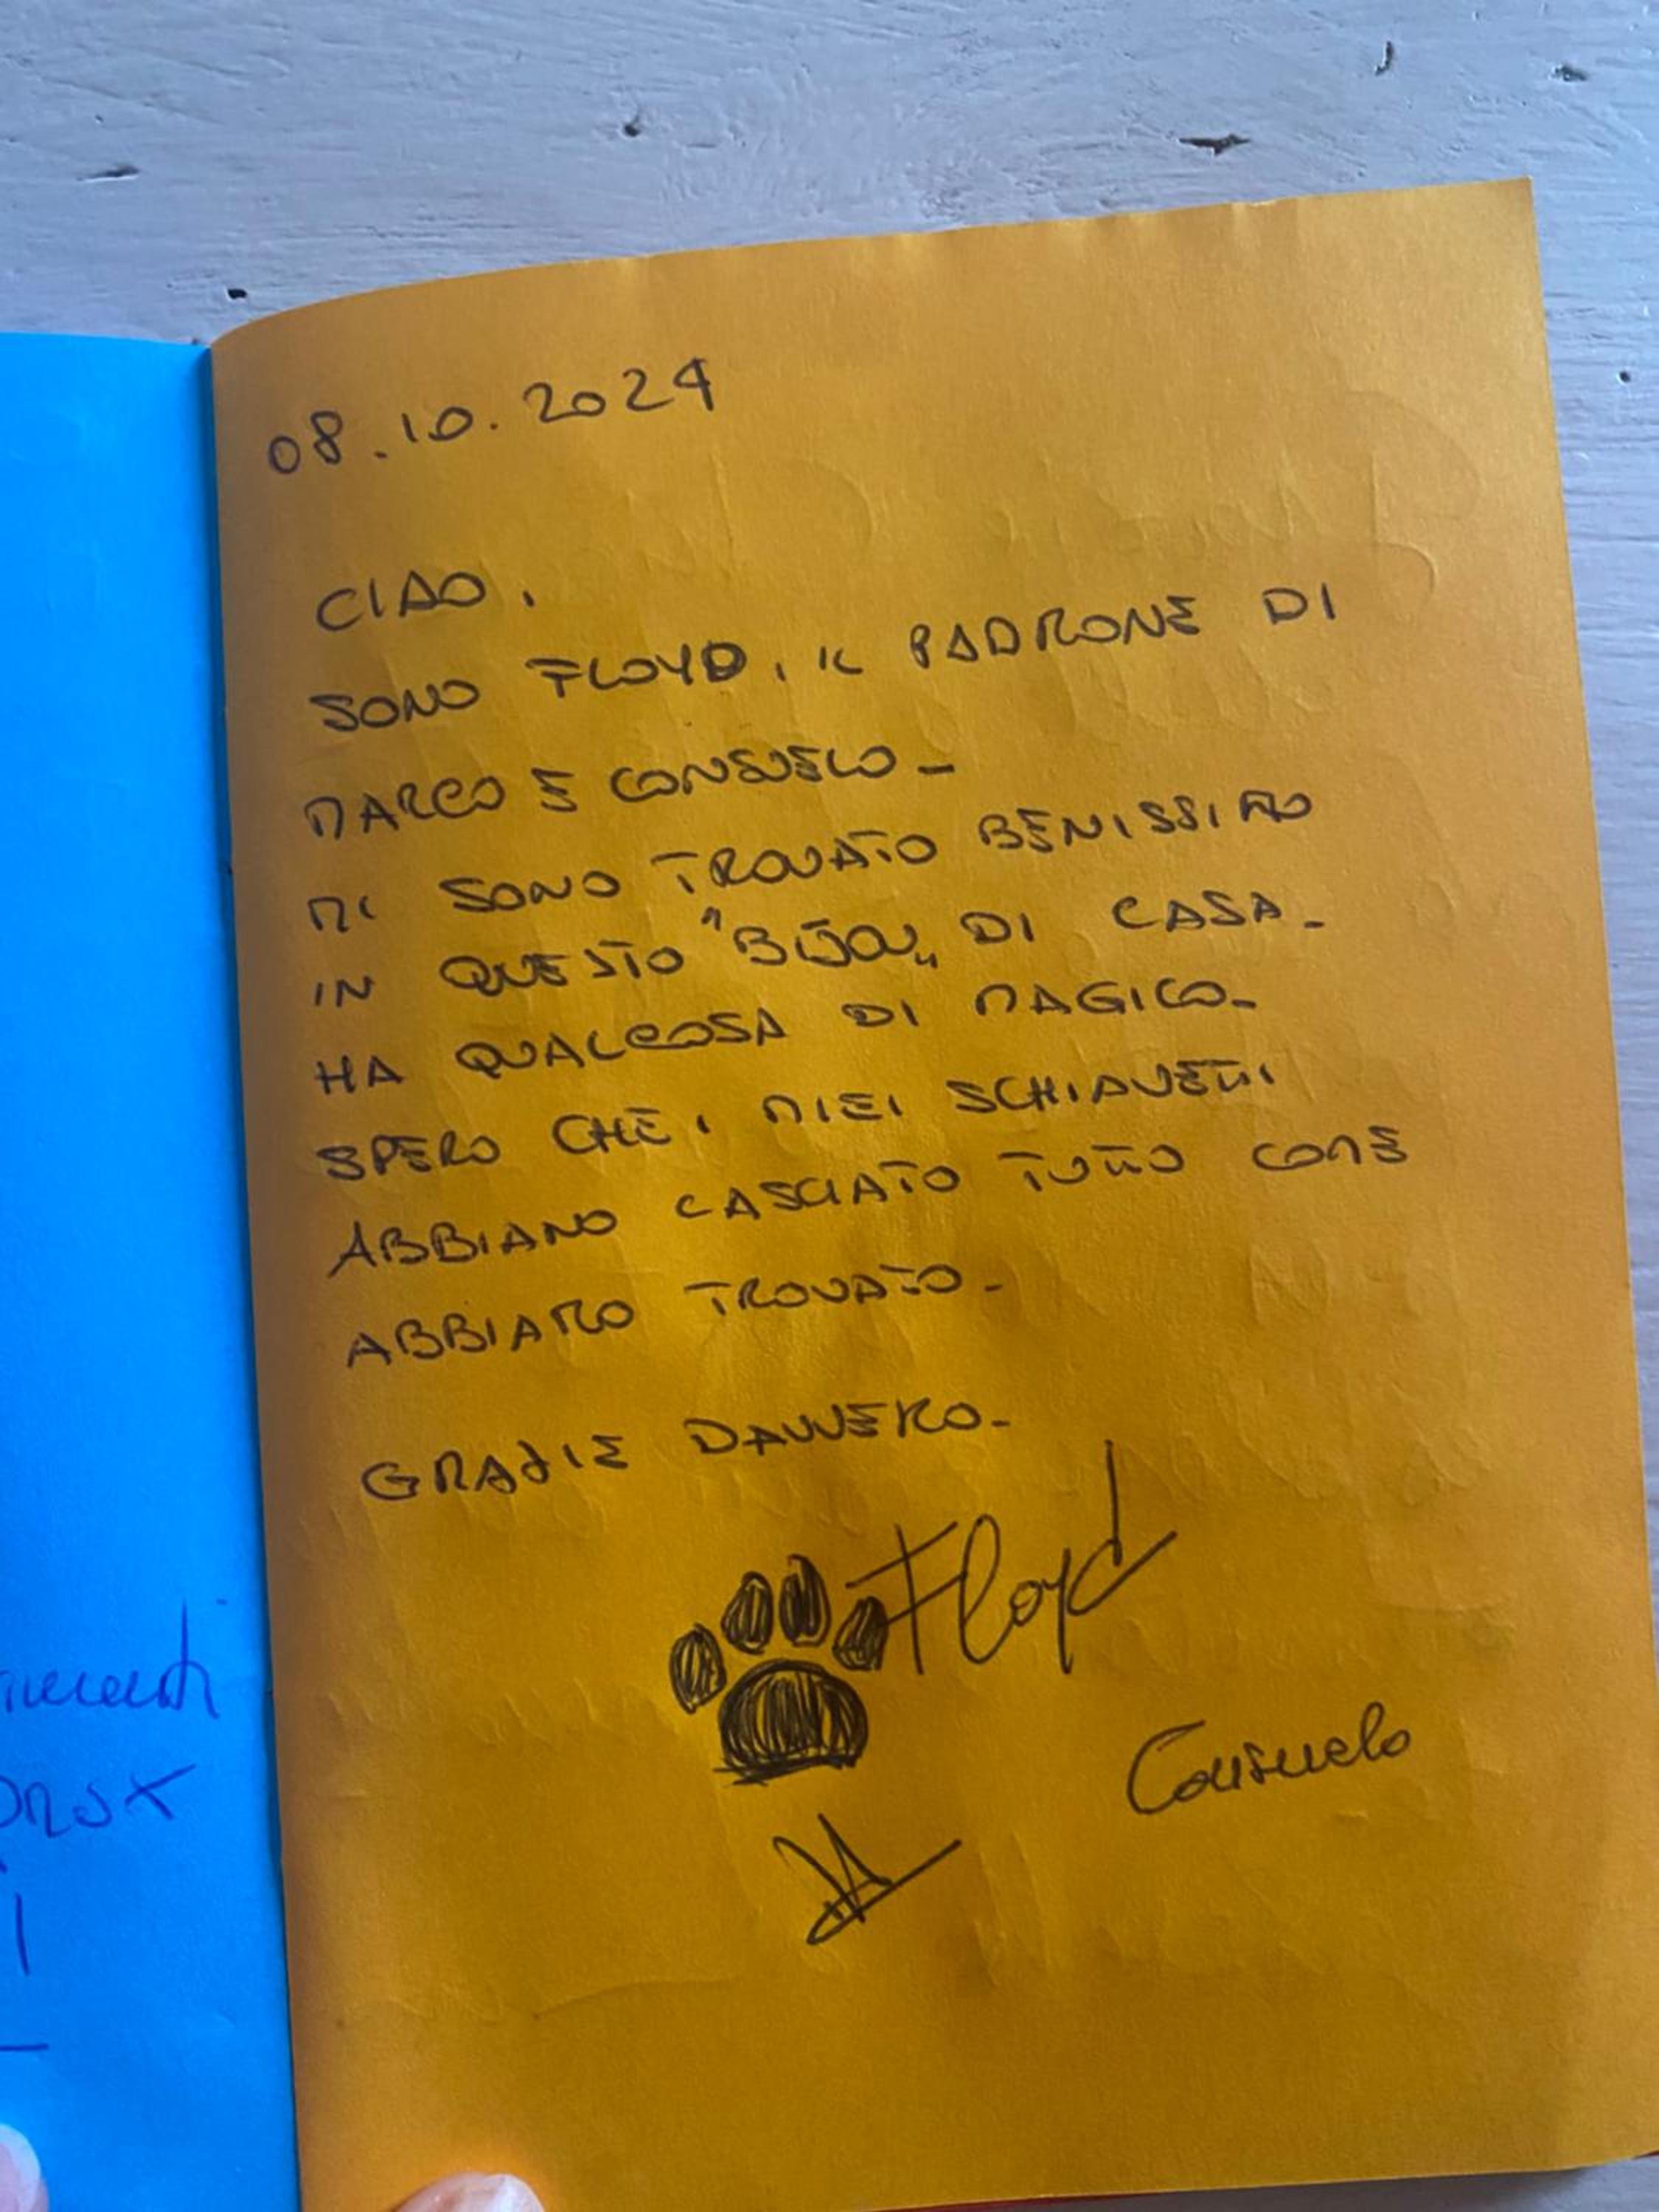 08.10.2024
CIAO,
SONO FLOYD, IL PADRONE DI
MARCO E CONSUELO-
MI SONO TROVATO BENISSIMO
IN QUESTO "BIJOU" DI CASA-
HA QUALCOSA DI MAGICO-
SPERO CHE I MIEI SCHIAVETTI
ABBIANO LASCIATO TUTTO COME
ABBIAMO TROVATO-
GRAZIE DAVVERO-
Floyd
Consuelo